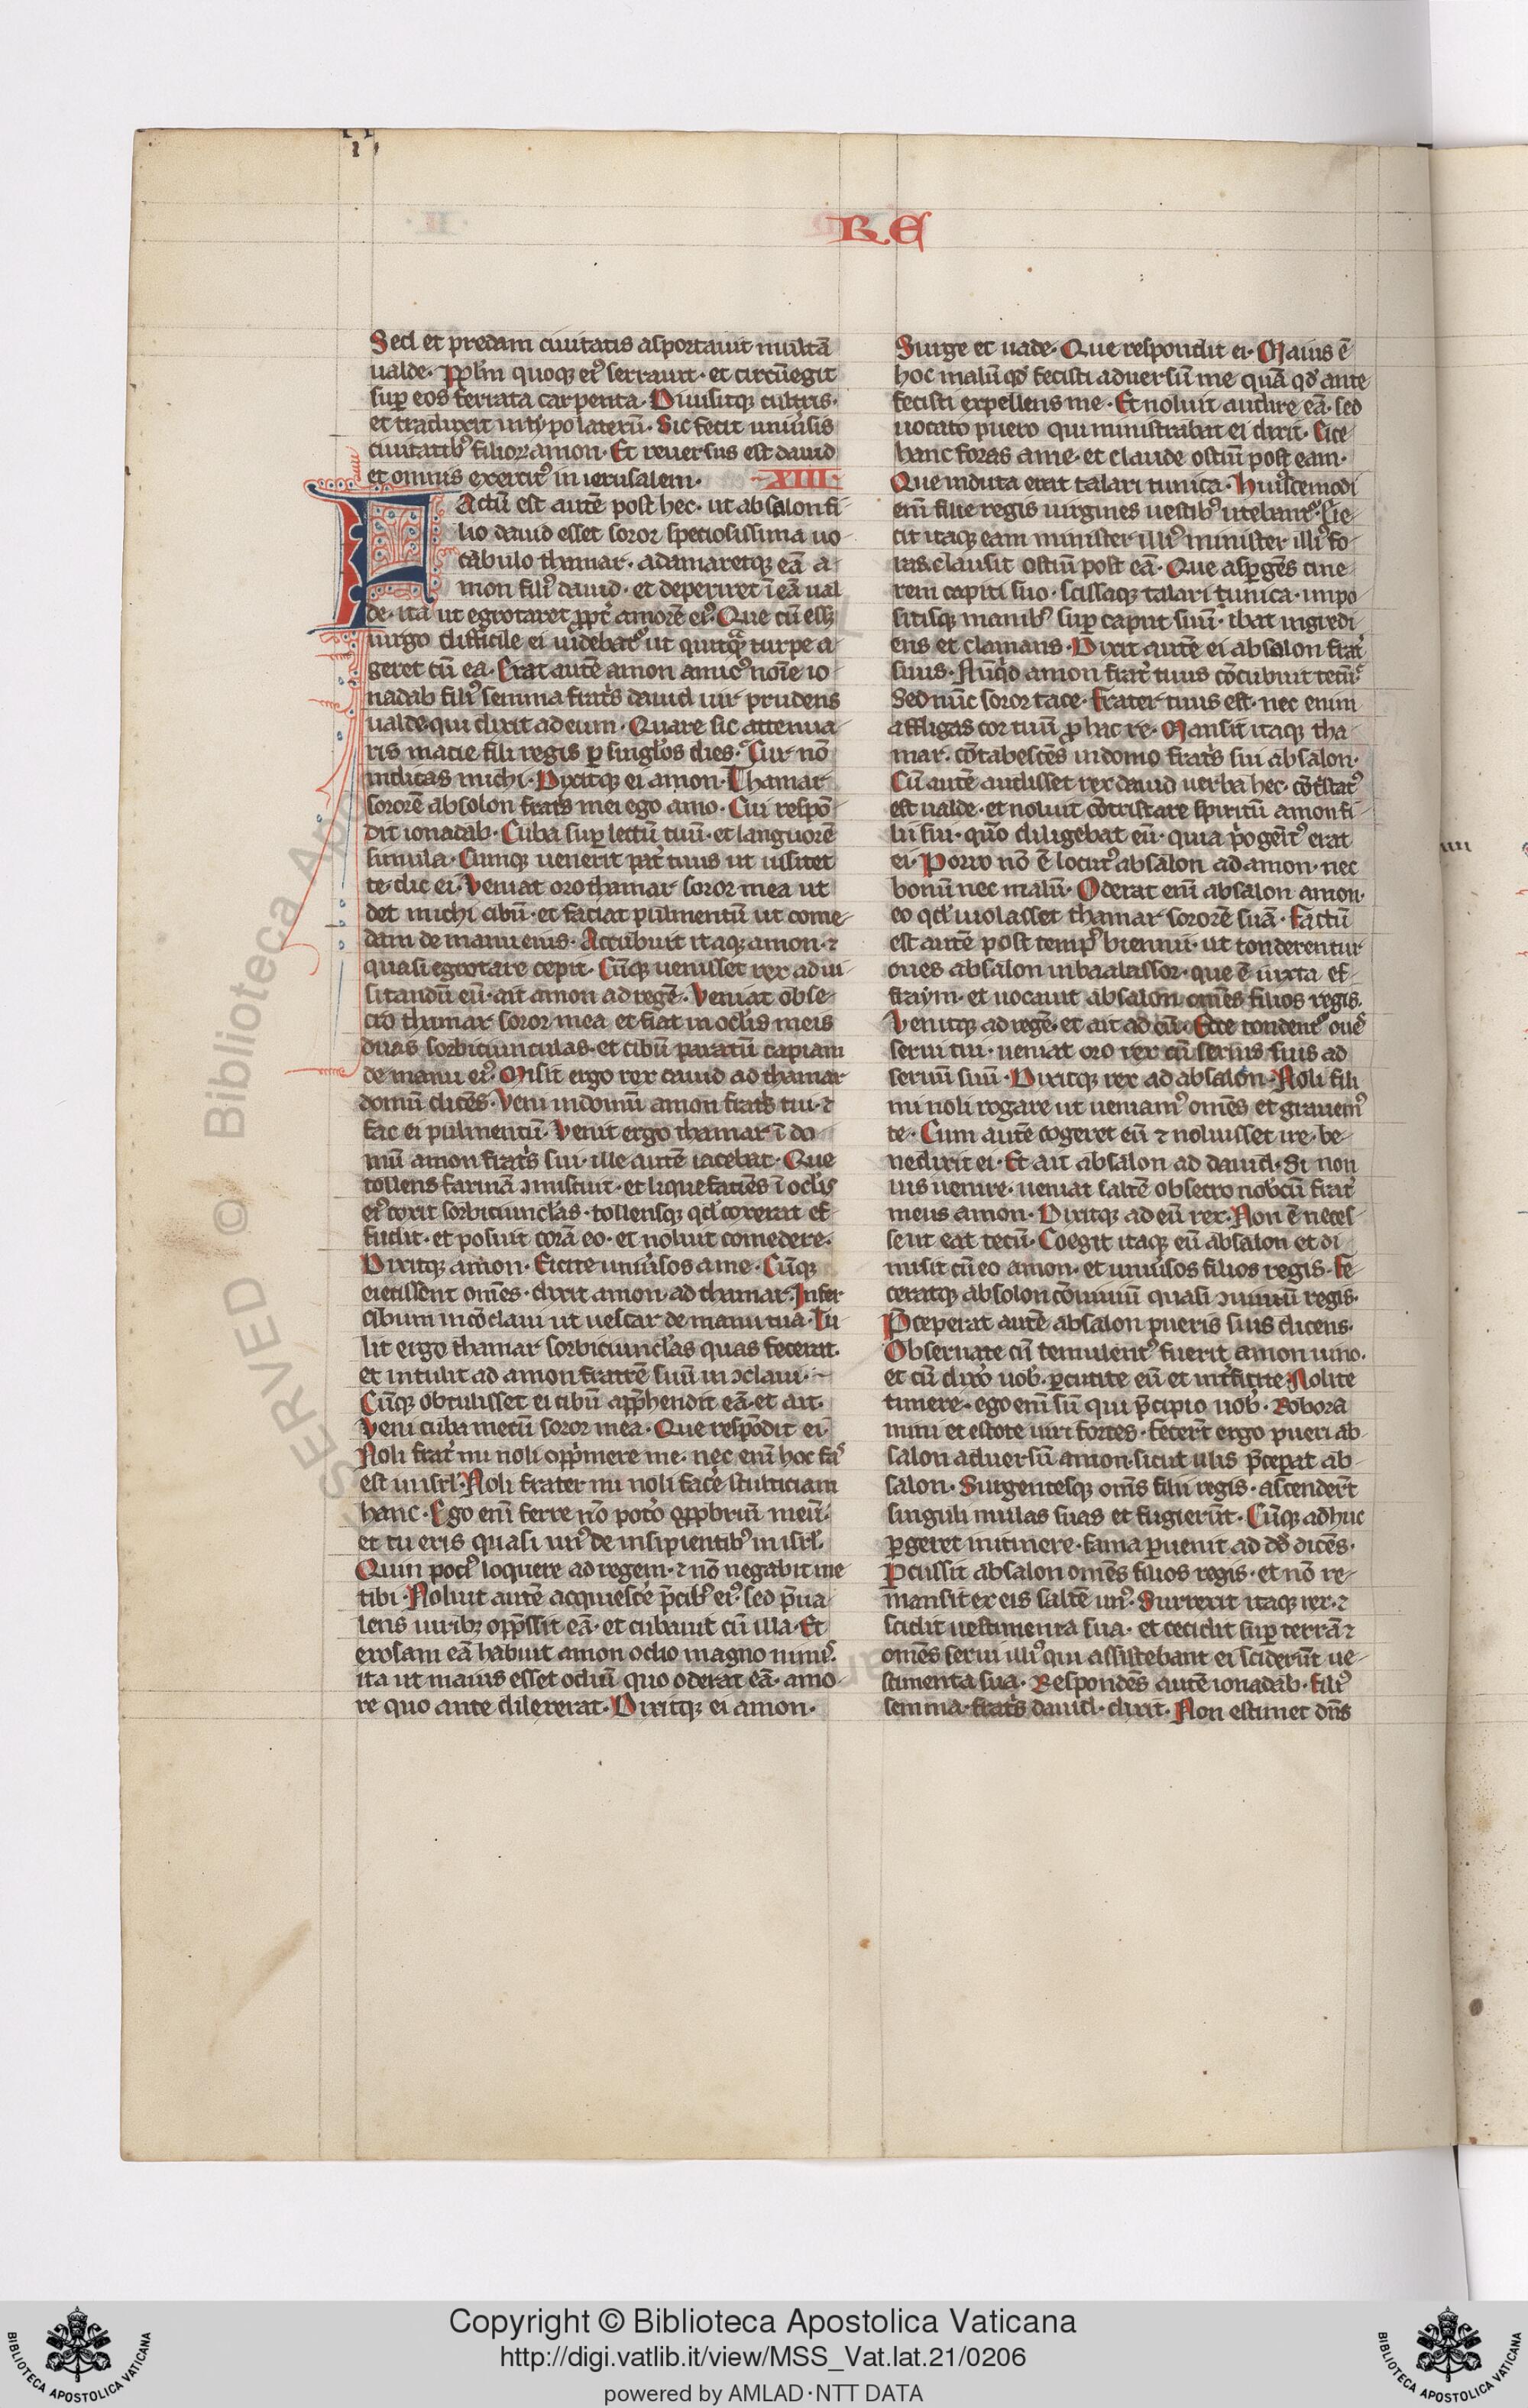 RE
Sed et predam ciuitatis asportauit multā
ualde· Pp̄lm quoqꝫ eiꝰ serrauit· et circūegit
sup̱ eos ferrata carpenta· Diuisitqꝫ cultris·
et traduxit in tẏpo laterū· Sic fecit uniūsis
ciuitatibꝰ filioꝝ amon· Et reuersus est dauid
et omnis exercitꝰ in ierusalem· XIII·
FActū est autē post hec· ut absalon fi-
lio dauid esset soror speciosissima uo-
cabulo thamar· adamaretqꝫ eā a-
mon filiꝰ dauid· et deperiret ī eā ual
de· ita ut egrotaret ꝓpt̄ amorē eiꝰ· Que cū essꝫ
uirgo difficile ei uidebat᷑ ut quicqᷓ turpe a-
geret cū ea· Erat autē amon amicꝰ noīe io-
nadab filiꝰ semma frat̄s dauid uir prudens
ualde· qui dixit ad eum· Quare sic attenua-
ris macie fili regis p̱ singl̓os dies· Cur nō
indicas michi· Dixitqꝫ ei amon· Thamar
sororē absolon frat̄s mei ego amo· Cui respō-
dit ionadab· Cuba sup̱ lectū tuū· et languorē
simula· Cumqꝫ uenerit pat̄ tuus ut uisitet
te· dic ei· Veniat oro thamar soror mea ut
det michi cibū· et faciat pulmentū ut come-
dam de manu eius· Accubuit itaqꝫ amon· ⁊
quasi egrotare cepit· Cūqꝫ uenisset rex ad ui-
sitandū eū· ait amon ad regē· Veniat obse-
cro thamar soror mea et fiat in ocl̓is meis
duas sorbiciunculas· et cibū paratū capiam
de manu eiꝰ· Misit ergo rex dauid ad thamar
domū dicēs· Veni in domū amon frat̄s tui· ⁊
fac ei pulmentū· Venit ergo thamar ī do-
mū amon frat̄s sui· ille autē iacebat· Que
tollens farinā ↄmiscuit· et liquefaciēs ī ocl̓is
eiꝰ coxit sorbiciuncl̓as· tollensqꝫ qd̓ coxerat ef-
fudit· et posuit corā eo· et noluit comedere·
Dixitqꝫ amon· Eicite uniūsos a me· Cūqꝫ
eiecissent omēs· dixit amon ad thamar· Infer
cibum in cōclaui ut uescar de manu tua· Tu-
lit ergo thamar sorbiciuncl̓as quas fecerat·
et intulit ad amon fratrē suū in ↄclaui·
Cūqꝫ obtulisset ei cibū app̄hendit eā· et ait·
Veni cuba mecū soror mea· Que respōdit ei·
Noli frat̄ mi noli opp̓mere me· nec enī hoc fas̓
est in isrl̓· Noli frater mi noli facē stulticiam
hanc· Ego enī ferre nō potō opp̱briū meū·
et tu eris quasi unꝰ de insipientibꝰ in isrl̓·
Quin pociꝰ loquere ad regem· ⁊ nō negabit me
tibi· Noluit autē acquiescē p̄cibꝰ eiꝰ· sed p̄ua-
lens uiribꝫ opp̄ssit eā· et cubauit cū illa· Et
exosam eā habuit amon odio magno nimis̓·
ita ut maius esset odiū quo oderat eā· amo-
re quo ante dilexerat· Dixitqꝫ ei amon·
Surge et uade· Que respondit ei· Maius ē
hoc malū qd̓ fecisti aduersū me quā qd̓ ante
fecisti expellens me· Et noluit audire eā· sed
uocato puero qui ministrabat ei dixit· Eice
hanc foras a me· et claude ostiū post eam·
Que induta erat talari tunica· Huiꝰcemodi
enī filie regis uirgines uestibꝰ utebant᷑· Eie-
cit itaqꝫ eam minister illiꝰ minister illiꝰ fo-
ras· ⁊ clausit ostiū post eā· Que asp̱gēs cine-
rem capiti suo· scissaqꝫ talari tunica· impo-
sitisqꝫ manibꝰ sup̱ caput suū· ibat ingredi-
ens et clamans· Dixit autē ei absalon frat̄
suus· Nūqd̓ amon frat̄ tuus cōcubuit tecū·
Sed nūc soror tace· frater tuus est· nec enim
affligas cor tuū ꝓ hac re· Mansit itaqꝫ tha-
mar· cōtabescēs in domo frat̄s sui absalon·
Cū autē audisset rex dauid uerba hec· cōt̓statꝰ
est ualde· et noluit cōtristare spiritū amon fi-
lii sui· qm̄o diligebat eū· quia p̓ogēitꝰ erat
ei· Porro nō ē locutꝰ absalon ad amon· nec
bonū nec malū· Oderat enī absalon amon·
eo qd̓ uiolasset thamar sororē suā· Factū
est autē post tempꝰ biennii· ut tonderentur
oues absalon in baalassor· que ē iuxta ef-
fraẏm· et uocauit absalon omēs filios regis·
Venitqꝫ ad regē· et ait ad eū· Ecce tondent᷑ oues̓
serui tui· ueniat oro rex cū seruis suis ad
seruū suū· Dixitqꝫ rex ad absalon· Noli fili
mi noli rogare ut ueniamꝰ omēs et grauemꝰ
te· Cum autē cogeret eū ⁊ noluisset ire· be-
nedixit ei· Et ait absalon ad dauid· Si non
uis uenire· ueniat saltē obsecro nob̓cū frat̄
meus amon· Dixitqꝫ ad eū rex· Non ē neces-
se ut eat tecū· Coegit itaqꝫ eū absalon et di-
misit cū eo amon· et uniūsos filios regis· Fe-
ceratqꝫ absolon cōuiuiū quasi ↄuiuiū regis·
P̄ceperat autē absalon pueris suis dicens·
Obseruate cū temulentꝰ fuerit amon uino·
et cū dixō uob̓· p̱cutite eū et int̓ficite· Nolite
timere· ego enī sū qui p̄cipio uob̓· Robora-
mini et estote uiri fortes· fecert̄ ergo pueri ab-
salon aduersū amon· sicut illis p̄ceperat ab-
salon· Surgentesqꝫ omēs filii regis· ascendert̄
singuli mulas suas et fugierūt· Cūqꝫ adhuc
p̱geret in itinere· fama p̱uenit ad dd̓ dicēs·
P̱cussit absalon omēs filios regis· et nō re-
mansit ex eis saltē unꝰ· Surrexit itaqꝫ rex· ⁊
scidit uestimenta sua· et cecidit sup̱ terrā· ⁊
omēs serui illiꝰ qui assistebant ei sciderūt ue-
stimenta sua· Respondēs autē ionadab· filiꝰ
semma· frat̄s dauid· dixit· Non estimet dn̄s
SERVED © Biblioteca Ap
Copyright © Biblioteca Apostolica Vaticana
http://digi.vatlib.it/view/MSS_Vat.lat.21/0206
powered by AMLAD·NTT DATA
BIBLIOTECA APOSTOLICA VATICANA
BIBLIOTECA APOSTOLICA VATICANA